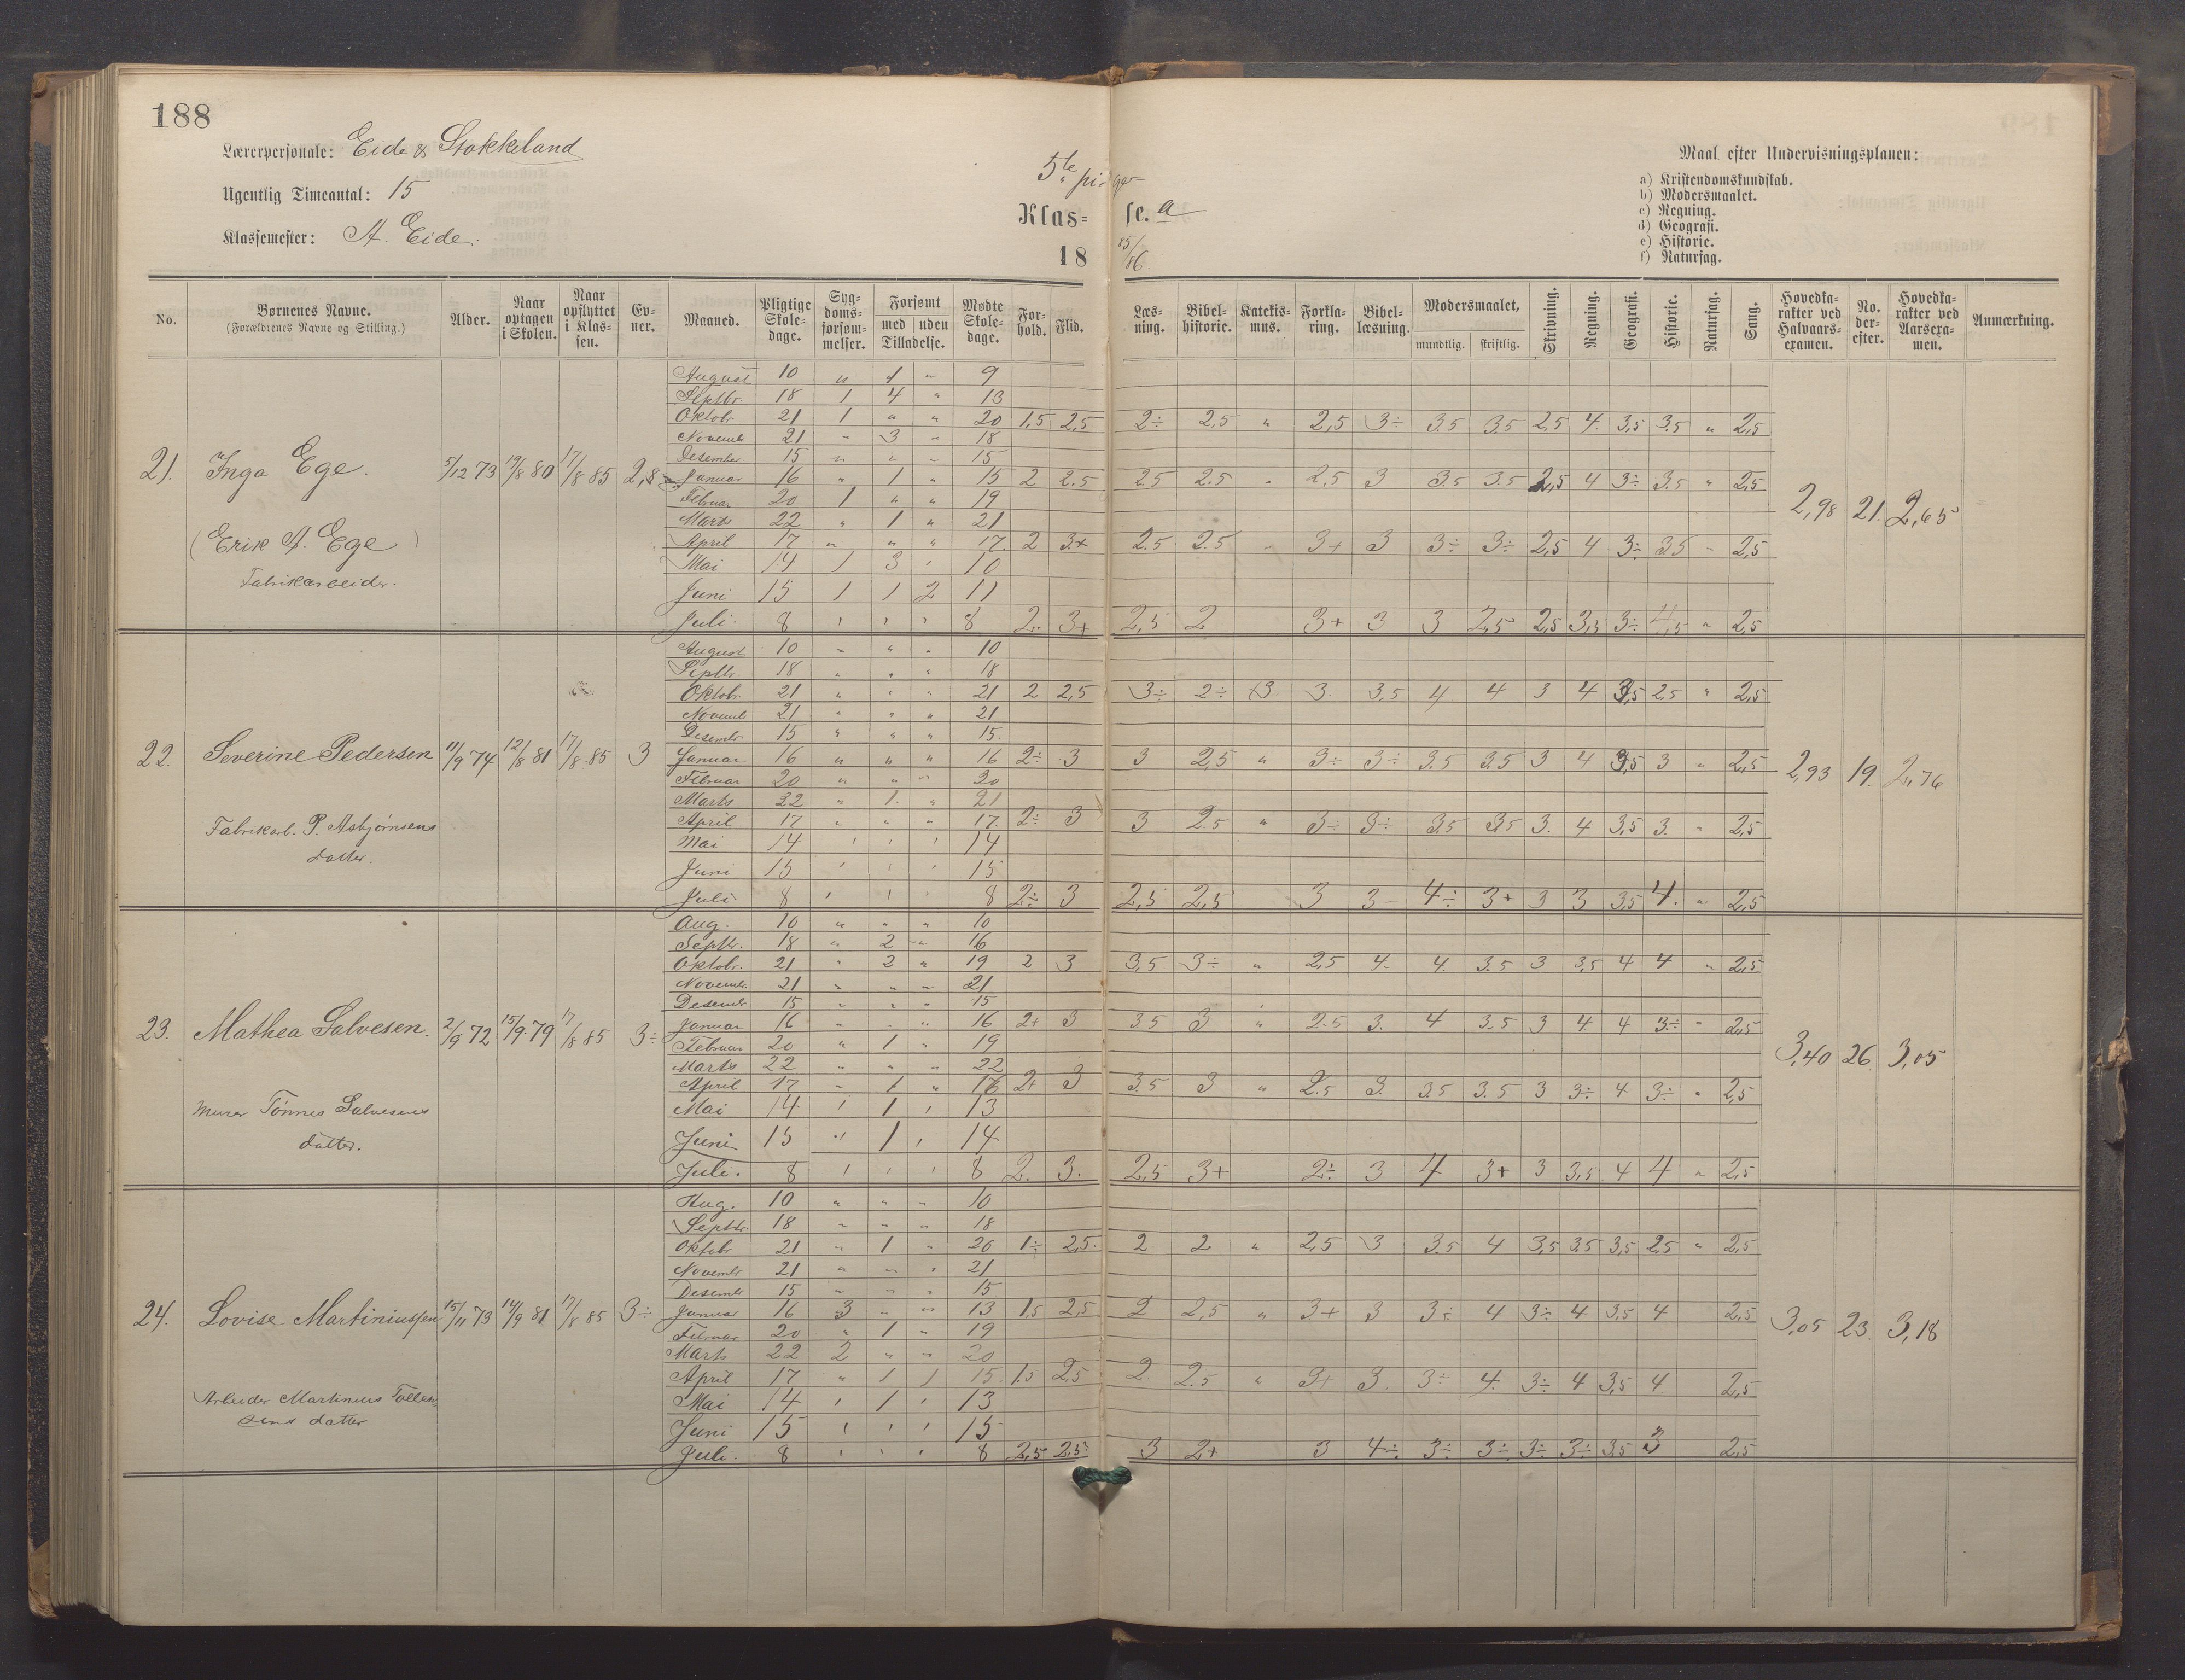 188
Lærerpersonale: Eide & Stokkeland
Ugentlig Timeantal: 15
Klassemester: A. Eide.
5te piger
Klasse. a
18 85/86.
Maal efter Undervisningsplanen:
a) Kristendomskundskab.
b) Modersmaalet.
c) Regning.
d) Geografi.
e) Historie.
f) Naturfag.
No. Børnenes Navne. (Forældrenes Navne og Stilling.) Alder. Naar optagen i Skolen. Naar opflyttet i Klassen. Evner. Maaned. Pligtige Skoledage. Sygdomsforsømmelser. Forsømt med uden Tilladelse. Mødte Skoledage. Forhold. Flid. Læsning. Bibelhistorie. Katekismus. Forklaring. Bibellæsning. Modersmaalet, mundtlig. skriftlig. Skrivning. Regning. Geografi. Historie. Naturfag. Sang. Hovedkarakter ved Halvaarsexamen. No. derefter. Hovedkarakter ved Aarsexamen. Anmærkning.
21. Inga Ege. 5/12 73 19/8 80 17/8 85 2,8
(Erik A. Ege)
Fabrikarbeider.
August 10 " 1 " 9
Septbr. 18 1 4 " 13
Oktobr. 21 1 " " 20 1,5 2,5 2÷ 2,5 " 2,5 3÷ 3.5 3.5 2,5 4. 3,5 3.5 " 2,5
Novembr 21 " 3 " 18
Desember 15 " " " 15
Januar 16 " 1 " 15 2 2.5 2.5 2.5 " 2.5 3 3.5 3.5 2,5 4 3÷ 3.5 " 2,5
Februar 20 1 " " 19
Marts 22 " 1 " 21
April 17 " " " 17. 2 3+ 2.5 2.5 " 3+ 3 3÷ 3÷ 2,5 4 3÷ 3.5 " 2,5
Mai 14 1 3 ' 10
Juni 15 1 1 2 11
Juli. 8 ' ' ' 8 2. 3+ 2,5 2 3+ 3 3 2,5 2,5 3,5 3÷ 4,5 " 2,5
2,98 21. 2,65
22. Severine Pedersen 11/9 74 12/8 81 17/8 85 3
Fabrikarb. P. Asbjørnsens
datter.
August 10 " " " 10
Septbr. 18 " " " 18
Oktobr. 21 " " " 21 2 2,5 3÷ 2÷ 3 3. 3,5 4 4 3 4 3,5 2.5 " 2,5
Novembr 21 " " " 21
Desembr 15 " " " 15.
Januar 16 " " " 16 2÷ 3 3 2,5 " 3÷ 3÷ 3.5 3.5 3 4 3,5 3 " 2,5
Februar 20 " " " 20
Marts 22 " 1. " 21
April 17 " " " 17. 2÷ 3 3 2.5 " 3÷ 3÷ 3.5 3.5 3. 4 3,5 3. " 2,5
Mai 14 ' ' ' 14
Juni 15 ' ' ' 15
Juli 8 ' ' ' 8 2÷ 3 2,5 2,5 3 3 4÷ 3+ 3 3 3,5 4. " 2,5
2,93 19. 2,76
23. Mathea Salvesen. 2/9 72 15/9 79 17/8 85 3÷
Murer Tønnes Salvesens
datter.
Aug. 10 " " " 10
Septbr. 18 " 2 " 16
Oktobr. 21 " 2 " 19 2 3 3,5 3÷ " 2,5 4. 4. 3.5 3 3,5 4 4 " 2,5
Novembr. 21 " " " 21
Desembr 15 " " " 15
Januar 16 " " " 16 2+ 3 3.5 3 " 2.5 3. 4 3.5 3 4 4 3÷ " 2,5
Februar 20 " 1 " 19
Marts 22 " " " 22
April 17 " 1 " 16 2+ 3 3.5 3 " 2.5 3. 3.5 3.5 3 3÷ 4 3÷ " 2,5
Mai 14 ' 1 ' 13
Juni 15 ' 1 ' 14
Juli. 8 ' ' ' 8 2. 3. 2,5 3+ 2÷ 3 4 3+ 3 3,5 4 4 " 2,5
3,40 26. 3,05
24. Lovise Martiniussen 15/11 73 14/9 81 17/8 85 3÷
Arbeider Martinius
sens datter
Aug. 10 " " " 10
Septbr. 18 " " " 18
Oktobr 21 " 1 " 20 1÷ 2,5 2 2 " 2,5 3 3.5 4 3,5 3.5 3,5 2,5 " 2,5
Novembr 21 " " " 21
Desembr 15 " " " 15
Januar 16 3 " " 13 1,5 2,5 2 2,5 " 3+ 3 3÷ 4 3÷ 4 3,5 4 2,5
Februar 20 " 1 " 19
Marts 22 2 " " 20
April 17 " 1 1 15. 1.5 2,5 2. 2.5 " 3+ 3. 3÷ 4. 3÷ 4 3,5 4 2,5
Mai 14 ' 1 ' 13
Juni 15 ' ' ' 15
Juli. 8 ' ' ' 8 2,5 2,5 3 2+ 3 4÷ 3÷ 3÷ 3÷ 3÷ 3,5 3 2,5
3,05 23. 3,18